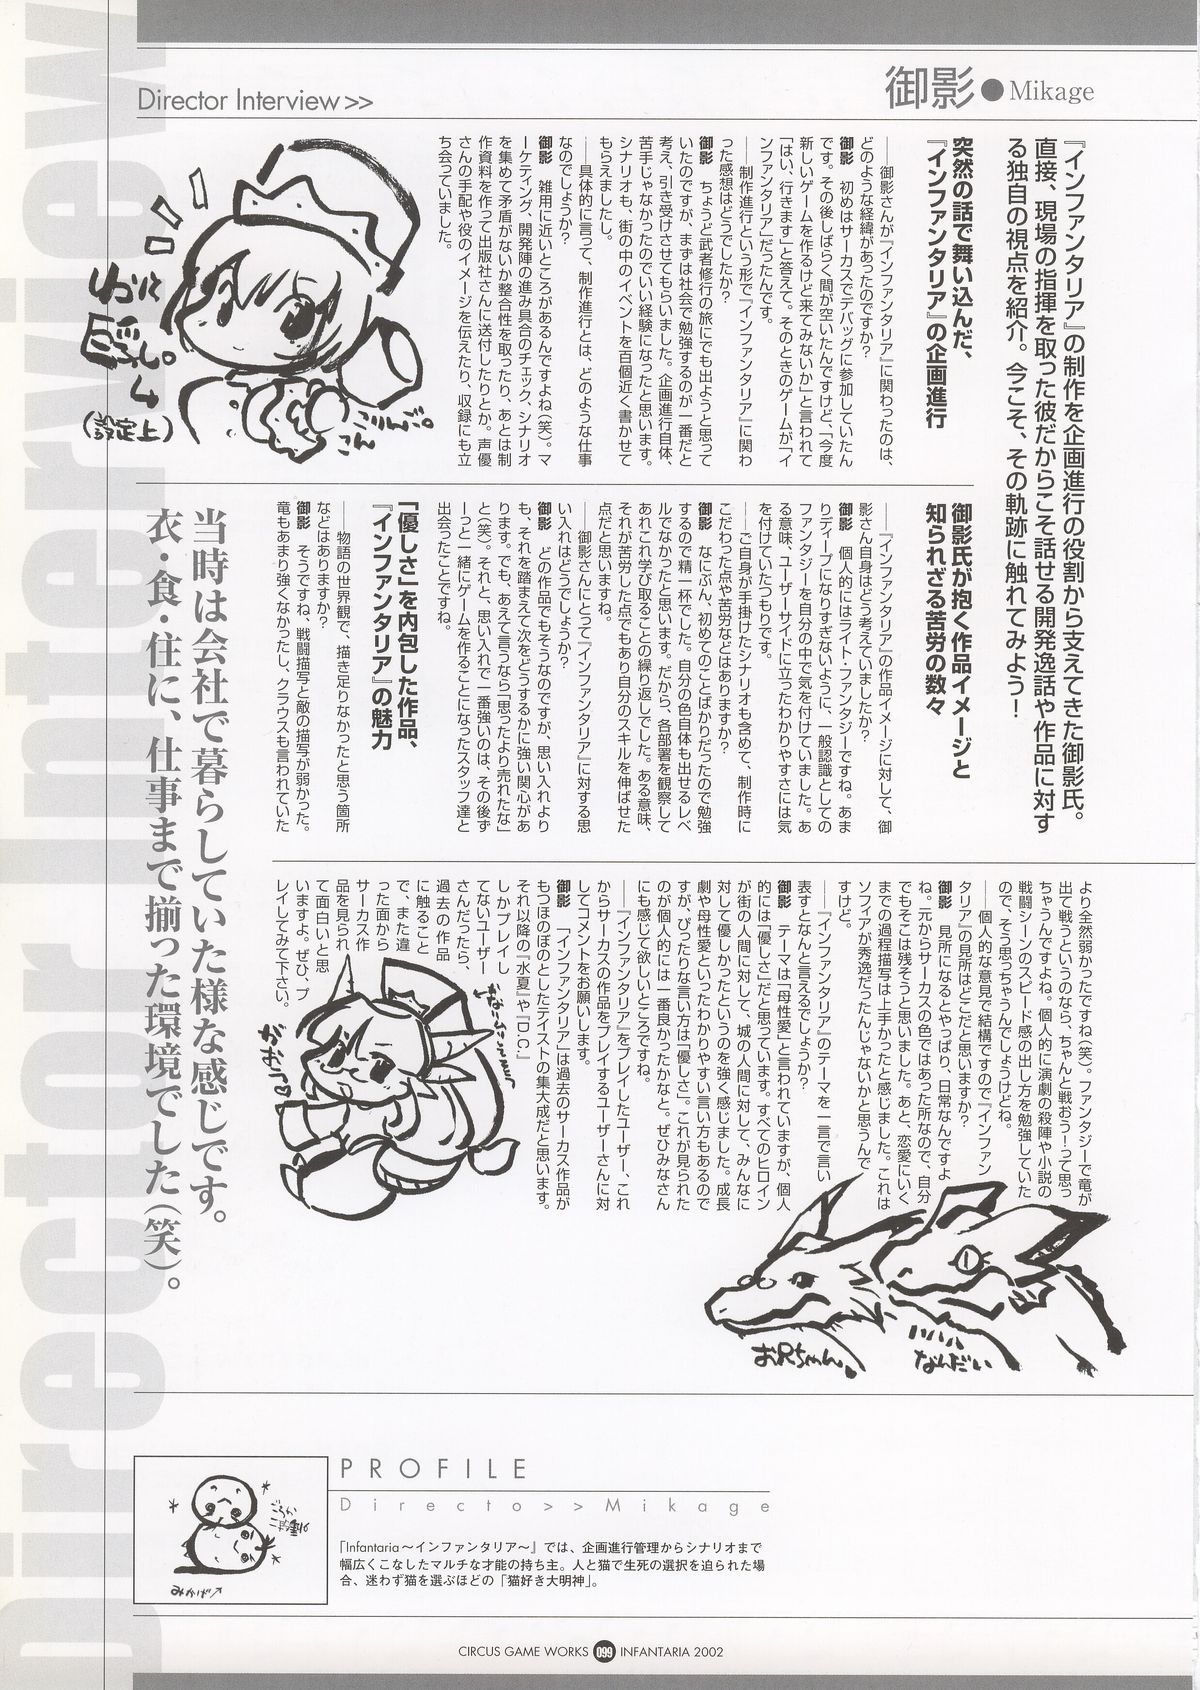 Director Interview
Director Interview>>
御影●Mikage
『インファンタリア』の制作を企画進行の役割から支えてきた御影氏。
直接、現場の指揮を取った彼だからこそ話せる開発逸話や作品に対す
る独自の視点を紹介。今こそ、その軌跡に触れてみよう！
突然の話で舞い込んだ、
『インファンタリア』の企画進行
――御影さんが『インファンタリア』に関わったのは、
どのような経緯があったのですか？
御影　初めはサーカスでデバッグに参加していたん
です。その後しばらく間が空いたんですけど、「今度
新しいゲームを作るけど来てみないか」と言われて
「はい、行きます」と答えて。そのときのゲームが「イ
ンファンタリア」だったんです。
――制作進行という形で『インファンタリア』に関わ
った感想はどうでしたか？
御影　ちょうど武者修行の旅にでも出ようと思って
いたのですが、まずは社会で勉強するのが一番だと
考え、引き受けさせてもらいました。企画進行自体、
苦手じゃなかったのでいい経験になったと思います。
シナリオも、街の中のイベントを百個近く書かせて
もらえましたし。
――具体的に言って、制作進行とは、どのような仕事
なのでしょうか？
御影　雑用に近いところがあるんですよね（笑）。マ
ーケティング、開発陣の進み具合のチェック、シナリオ
を集めて矛盾がないか整合性を取ったり、あとは制
作資料を作って出版社さんに送付したりとか。声優
さんの手配や役のイメージを伝えたり、収録にも立
ち会っていました。
こりんご。
こん
（設定上）
御影氏が抱く作品イメージと
知られざる苦労の数々
――『インファンタリア』の作品イメージに対して、御
影さん自身はどう考えていましたか？
御影　個人的にはライト・ファンタジーですね。あま
りディープになりすぎないように、一般認識としての
ファンタジーを自分の中で気を付けていました。あ
る意味、ユーザーサイドに立ったわかりやすさには気
を付けていたつもりです。
――ご自身が手掛けたシナリオも含めて、制作時に
こだわった点や苦労などはありますか？
御影　なにぶん、初めてのことばかりだったので勉強
するので精一杯でした。自分の色自体も出せるレベ
ルでなかったと思います。だから、各部署を観察して
あれこれ学び取ることの繰り返しでした。ある意味、
それが苦労した点でもあり自分のスキルを伸ばせた
点だと思いますね。
――御影さんにとって『インファンタリア』に対する思
い入れはどうでしょうか？
御影　どの作品でもそうなのですが、思い入れより
も、それを踏まえて次をどうするかに強い関心があ
ります。でも、あえて言うなら「思ったより売れたな」
と（笑）。それと、思い入れで一番強いのは、その後ず
ーっと一緒にゲームを作ることになったスタッフ達と
出会ったことですね。
「優しさ」を内包した作品、
『インファンタリア』の魅力
――物語の世界観で、描き足りなかったと思う箇所
などはありますか？
御影　そうですね、戦闘描写と敵の描写が弱かった。
竜もあまり強くなかったし、クラウスも言われていた
当時は会社で暮らしていた様な感じです。
衣・食・住に、仕事まで揃った環境でした（笑）。
より全然弱かったですね（笑）。ファンタジーで竜が
出て戦うというのなら、ちゃんと戦おう！って思っ
ちゃうんですよね。個人的に演劇の殺陣や小説の
戦闘シーンのスピード感の出し方を勉強していた
ので、そう思っちゃうんでしょうけどね。
――個人的な意見で結構ですので『インファン
タリア』の見所はどこだと思いますか？
御影　見所になるとやっぱり、日常なんですよ
ね。元からサーカスの色ではあった所なので、自分
でもそこは残そうと思いました。あと、恋愛にいく
までの過程描写は上手かったと感じました。これは
ソフィアが秀逸だったんじゃないかと思うんで
すけど。
――『インファンタリア』のテーマを一言で言い
表すとなんと言えるでしょうか？
御影　テーマは「母性愛」と言われていますが、個人
的には「優しさ」だと思っています。すべてのヒロイン
が街の人間に対して、城の人間に対して、みんなに
対して優しかったというのを強く感じました。成長
劇や母性愛といったわかりやすい言い方もあるので
すが、ぴったりな言い方は「優しさ」。これが見られた
のが個人的には一番良かったかなと。ぜひみなさん
にも感じて欲しいところですね。
――『インファンタリア』をプレイしたユーザー、これ
からサーカスの作品をプレイするユーザーさんに対
してコメントをお願いします。
御影　「インファンタリア」は過去のサーカス作品が
もつほのぼのとしたテイストの集大成だと思います。
それ以降の『水夏』や『D.C.』
しかプレイし
てないユーザー
さんだったら、
過去の作品
に触ること
で、また違
った面から
サーカス作
品を見られ
て面白いと思
いますよ。ぜひ、プ
レイしてみて下さい。
がおっ♡
お兄ちゃん。
ハハハ
なんだい
PROFILE
Directo>>Mikage
「Infantaria～インファンタリア～』では、企画進行管理からシナリオまで
幅広くこなしたマルチな才能の持ち主。人と猫で生死の選択を迫られた場
合、迷わず猫を選ぶほどの「猫好き大明神」。
みかげ↗
CIRCUS GAME WORKS 099 INFANTARIA 2002